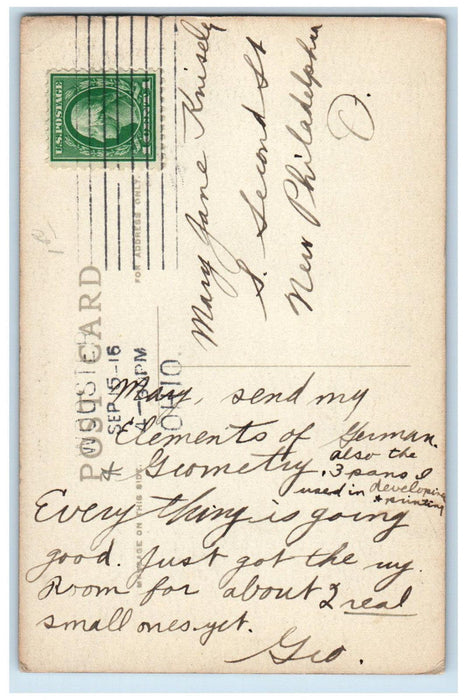 Mary Jane Knisely
S. Second St
New Philadelphia
O.
U.S. POSTAGE
FOR ADDRESS ONLY
POST CARD
SEP 15-16
4- PM
OHIO
MESSAGE ON THIS SIDE
Mary, send my
Elements of German.
& Geometry. also the
3 pans I
used in developing
& printing
Every thing is going
good. Just got the
Room for about 2 real
small ones yet.
Geo.